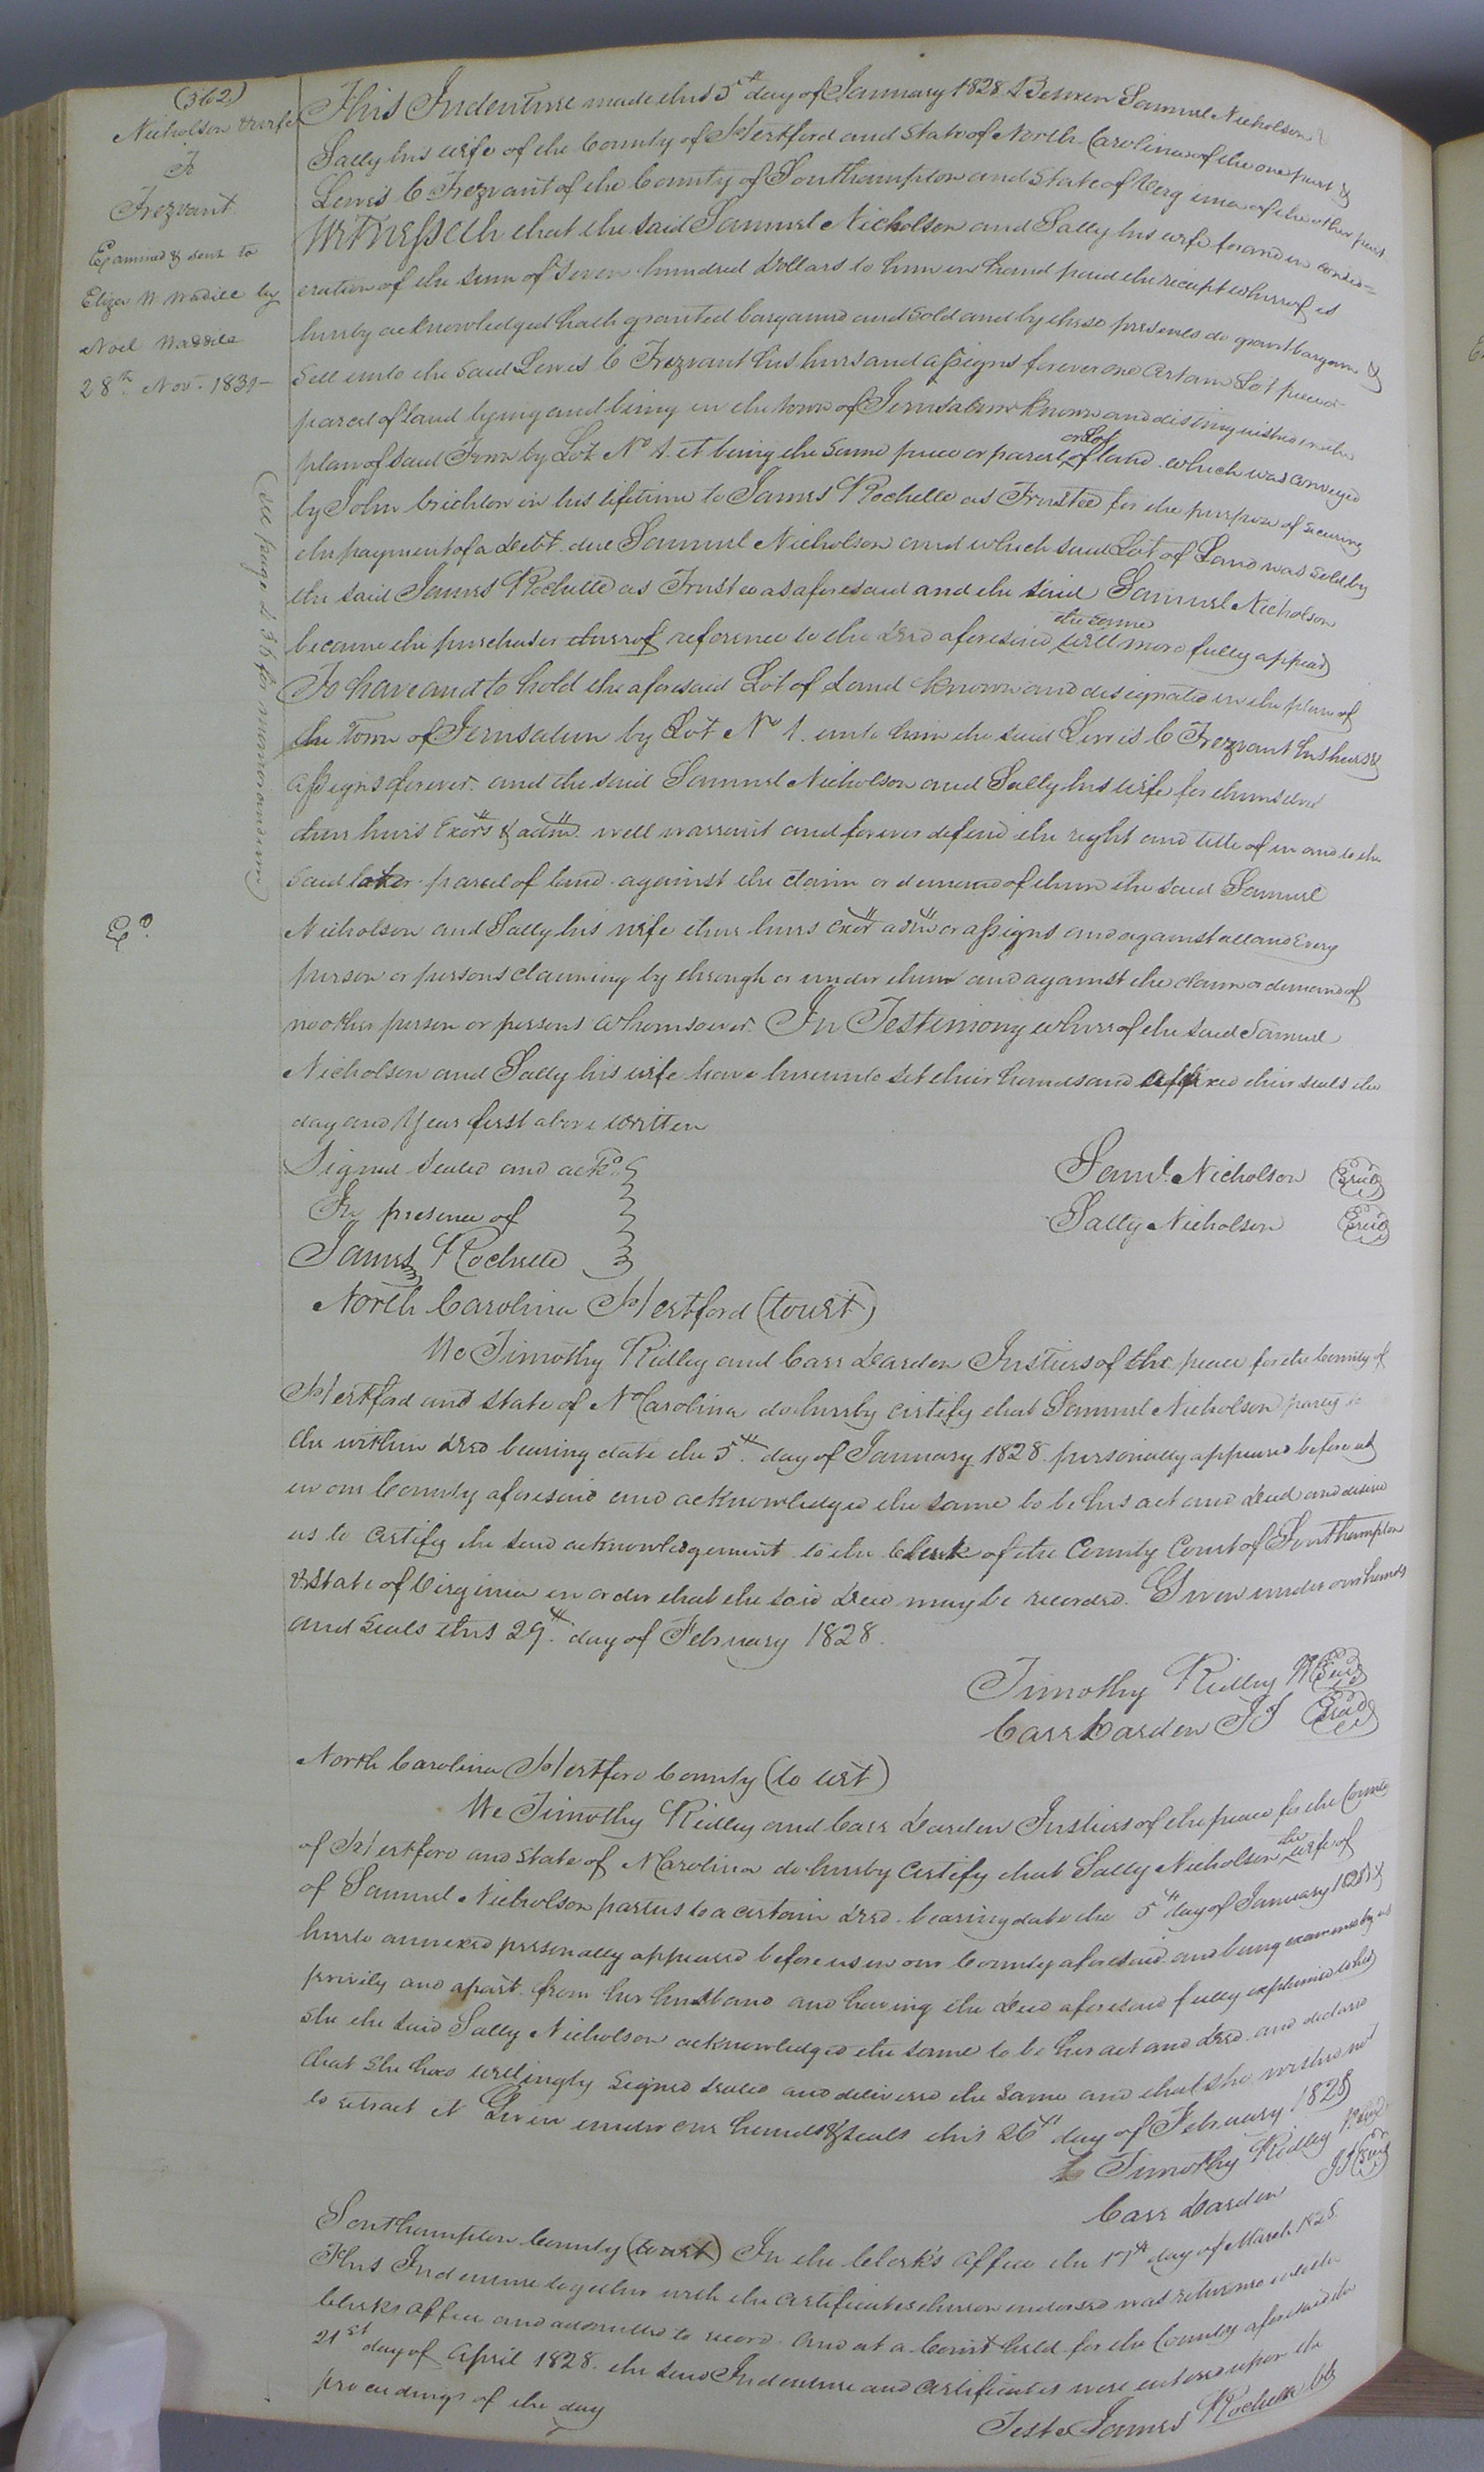 (362)
Nicholson & wife
To
Trezvant
Examined & sent to
Eliza W Waddill by
Noel Waddill
28th Nov. 1831 -
(See page for memorandum)
Ed.
This Indenture made this 5th day of January 1828 Between Samuel Nicholson &
Sally his wife of the County of Hertford and State of North Carolina of the one part &
Lewis C Trezvant of the County of Southampton and State of Virginia of the other part
Witnesseth that the said Samuel Nicholson and Sally his wife for and in consid=
eration of the sum of Seven hundred Dollars to him in hand paid the receipt whereof is
hereby acknowledged hath granted bargained and sold and by these presents do grant bargain &
sell unto the said Lewis C Trezvant his heirs and assigns forever one certain Lot piece or
parcel of land lying and being in the town of Jerusalem known and distinguished in the
plan of said Town by Lot No 1. it being the same piece or parcel or Lot of land which was conveyed
by John Crichton in his lifetime to James Rochelle as Trustee for the purpose of securing
the payment of a Debt due Samuel Nicholson and which said Lot of Land was sold by
the said James Rochelle as Trustee as aforesaid and the said Samuel Nicholson
became the purchaser thereof reference to the Deed aforesaid the same will more fully appear
To have and to hold the aforesaid Lot of Land known and designated in the plan of
the Town of Jerusalem by Lot No 1. unto him the said Lewis C Trezvant his heirs &
assigns forever. and the said Samuel Nicholson and Sally his wife for themselves
their heirs Exors & adms well warrant and forever defend the right and title of in and to the
said lot or parcel of land against the claim or demand of them the said Samuel
Nicholson and Sally his wife their heirs exors adms or assigns and against all and Every
person or persons claiming by through or under them and against the claim or demand of
no other person or persons whomsoever. In Testimony whereof the said Samuel
Nicholson and Sally his wife have hereunto set their hands and affixed their seals the
day and year first above written
Signed Sealed and ackd.
In presence of
James Rochelle
Saml. Nicholson (Seal)
Sally Nicholson (Seal)
North Carolina Hertford (to wit)
We Timothy Ridley and Carr Darden Justices of the peace for the County of
Hertford and State of N Carolina do hereby certify that Samuel Nicholson party to
the within Deed bearing date the 5th. day of January 1828. personally appeared before us
in our County aforesaid and acknowledged the same to be his act and Deed and desired
us to certify the said acknowledgement to the Clerk of the County Court of Southampton
& State of Virginia in order that the said Deed may be recorded. Given under our hands
and Seals this 29th. day of February 1828.
Timothy Ridley (Seal)
Carr Darden JP (Seal)
North Carolina Hertford County (to wit)
We Timothy Ridley and Carr Darden Justices of the peace for the County
of Hertford and State of N Carolina do hereby Certify that Sally Nicholson the wife of
of Samuel Nicholson parties to a certain Deed bearing date the 5th day of January 1828 &
hereto annexed personally appeared before us in our County aforesaid and being examined by us
privily and apart from her husband and having the Deed aforesaid fully explained to her
she the said Sally Nicholson acknowledged the same to be her act and Deed and declared
that she had willingly Signed Sealed and delivered the same and that she wished not
to retract it Given under our hands & seals this 26th day of February 1828
Timothy Ridley (Seal)
Carr Darden JP (Seal)
Southampton County (to wit) In the Clerk's office the 17th day of March 1828.
This Indenture together with the Certificates thereon endorsed was returned into the
Clerks office and admitted to record. And at a Court held for the County aforesaid the
21st day of April 1828. the said Indenture and Certificates were entered upon the
proceedings of the day
Teste James Rochelle Clk